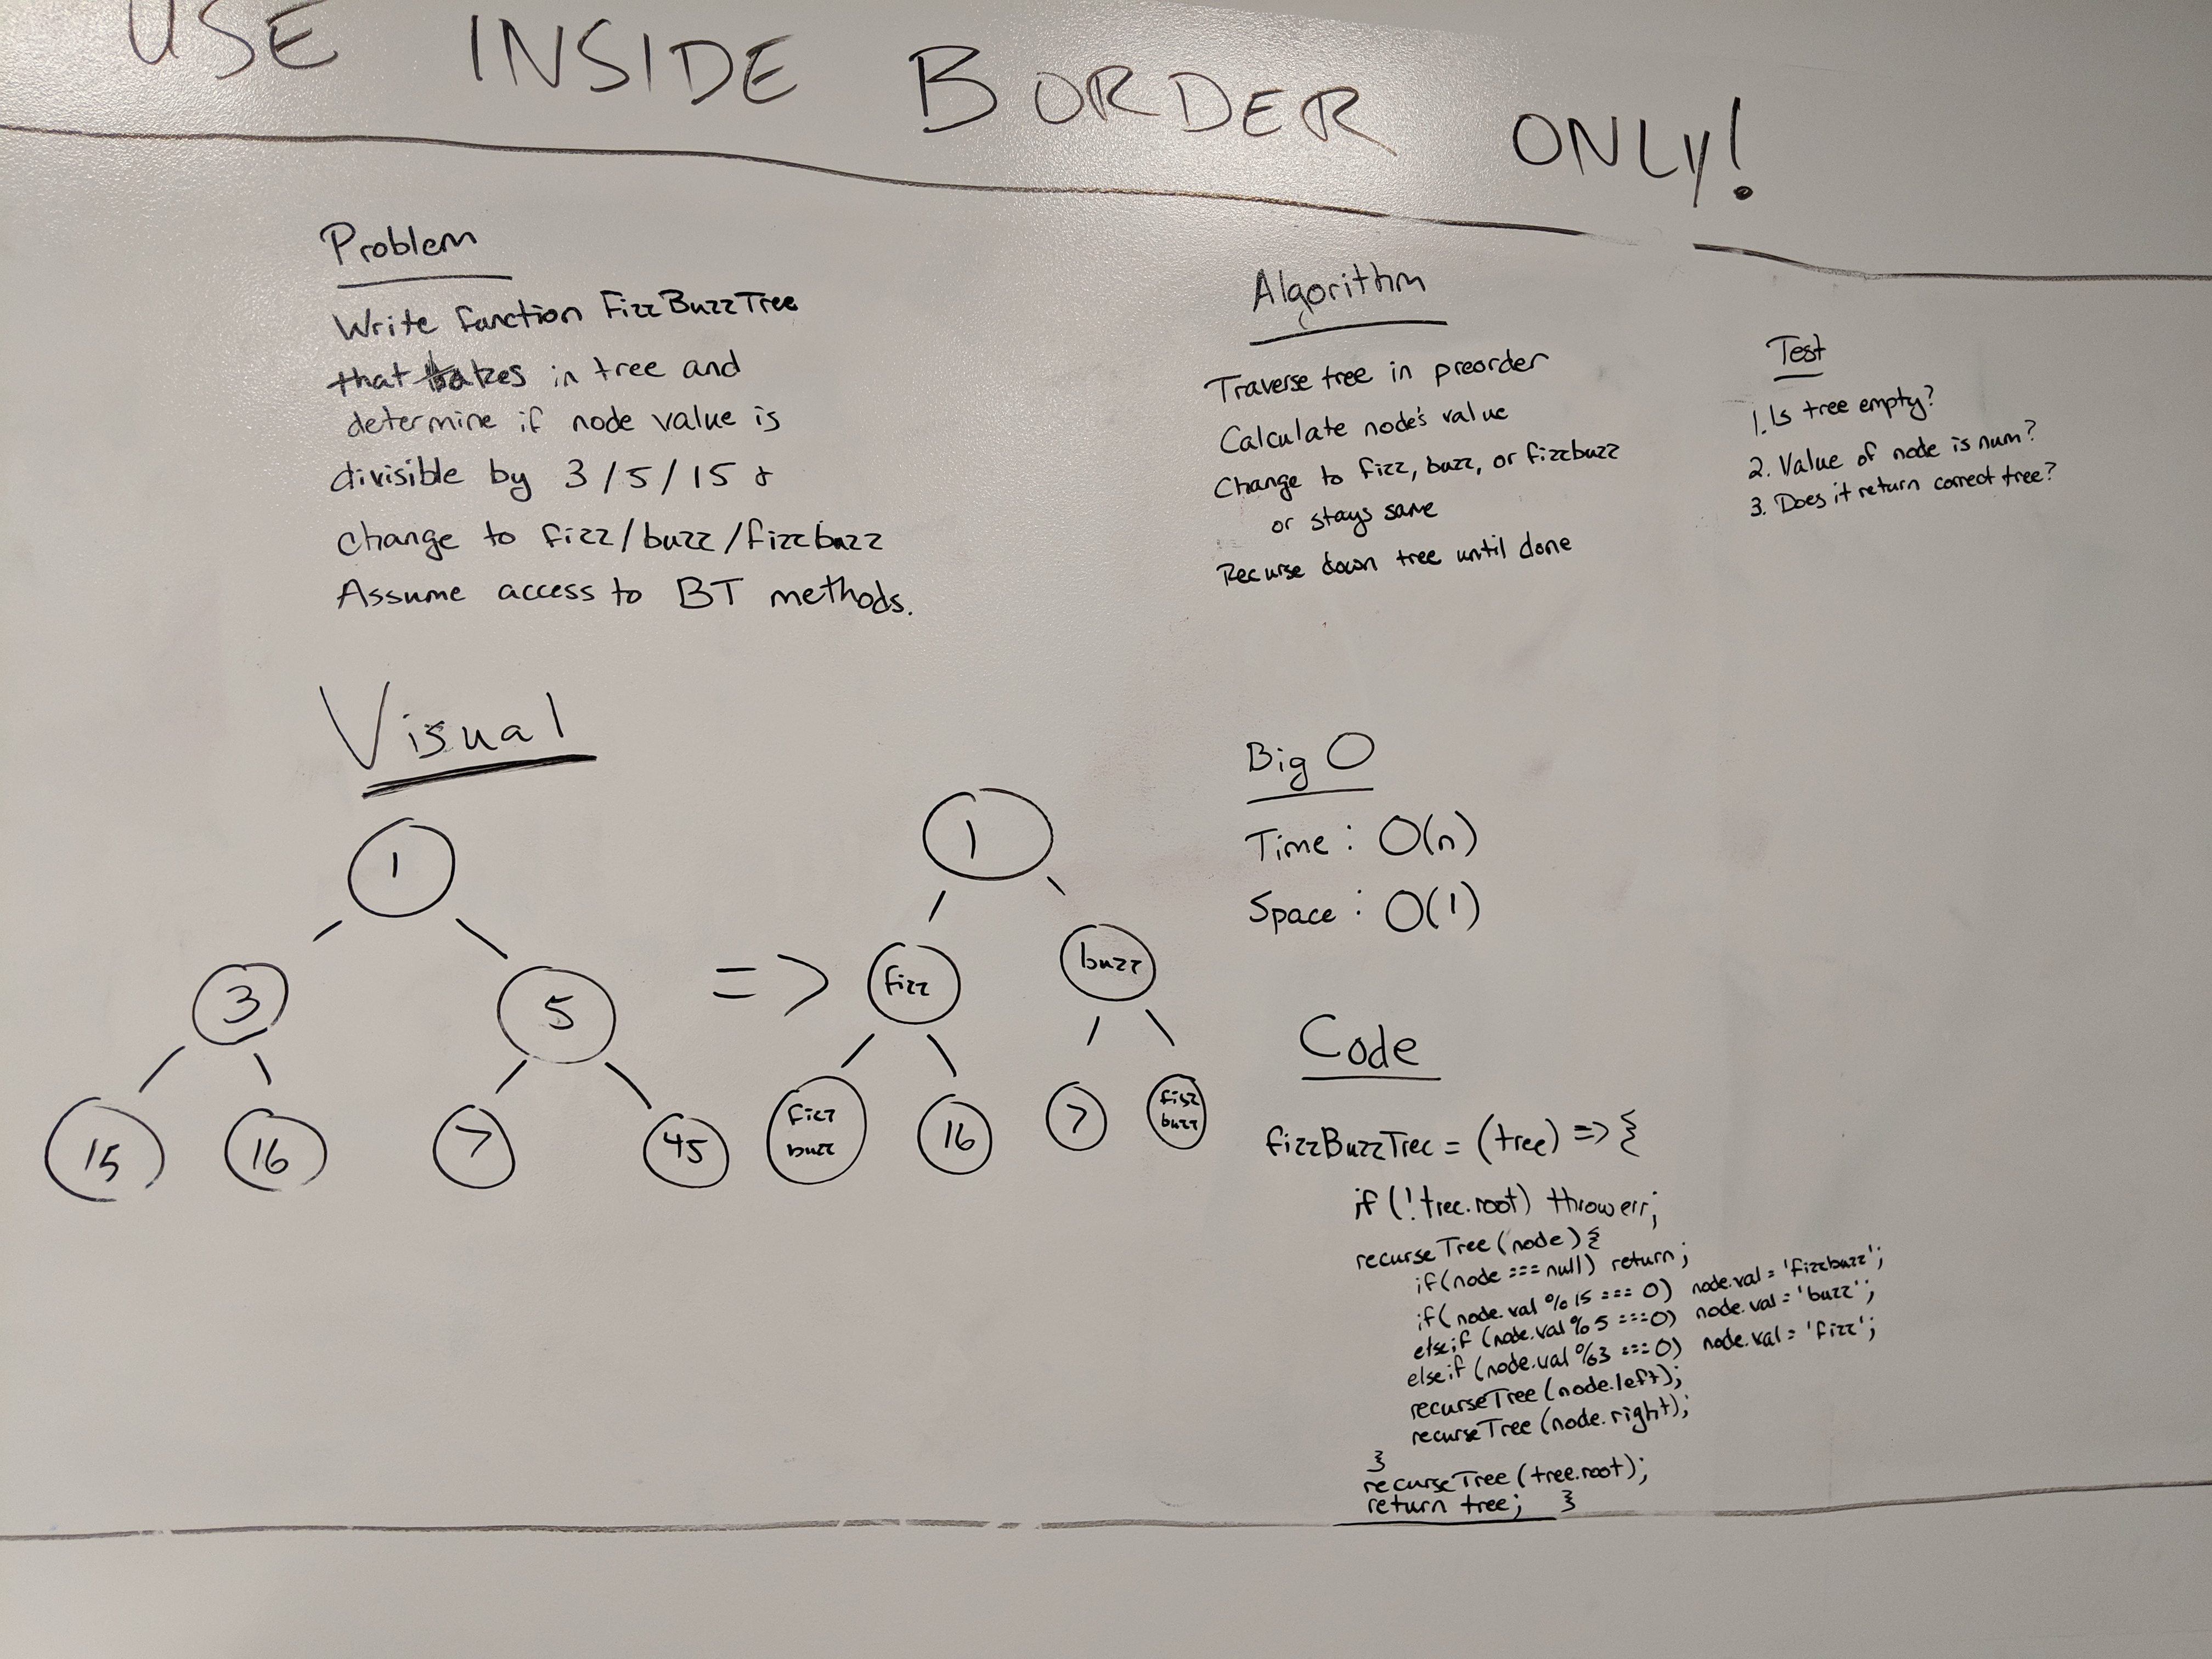 USE INSIDE BORDER ONLY!
Problem
Write function FizzBuzzTree
that takes in tree and
determine if node value is
divisible by 3/5/15 &
change to fizz/buzz/fizzbuzz
Assume access to BT methods.
Algorithm
Traverse tree in preorder
Calculate node's value
Change to fizz, buzz, or fizzbuzz
or stays same
Recurse down tree until done
Test
1. Is tree empty?
2. Value of node is num?
3. Does it return correct tree?
Visual
1
3 5
15 16 7 45
=>
1
fizz buzz
fizz
buzz
16
7
fizz
buzz
Big O
Time : O(n)
Space : O(1)
Code
fizzBuzzTree = (tree) => {
if (!tree.root) throw err;
recurseTree (node) {
if (node === null) return;
if (node.val % 15 === 0) node.val = 'fizzbuzz';
else if (node.val % 5 === 0) node.val = 'buzz';
else if (node.val % 3 === 0) node.val = 'fizz';
recurseTree (node.left);
recurseTree (node.right);
}
recurseTree (tree.root);
return tree; }